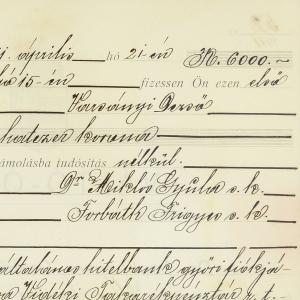 április hó 21-én K. 6000.-
hó 15-én fizessen Ön ezen első
Varsányi Dezső
hatezer korona
ámolásba tudósítás nélkül.
Dr Miklós Gyula s. k.
Forbáth Frigyes s. k.
általános hitelbank győri fiókjá-
Vidéki Takarékpénztár r. t.